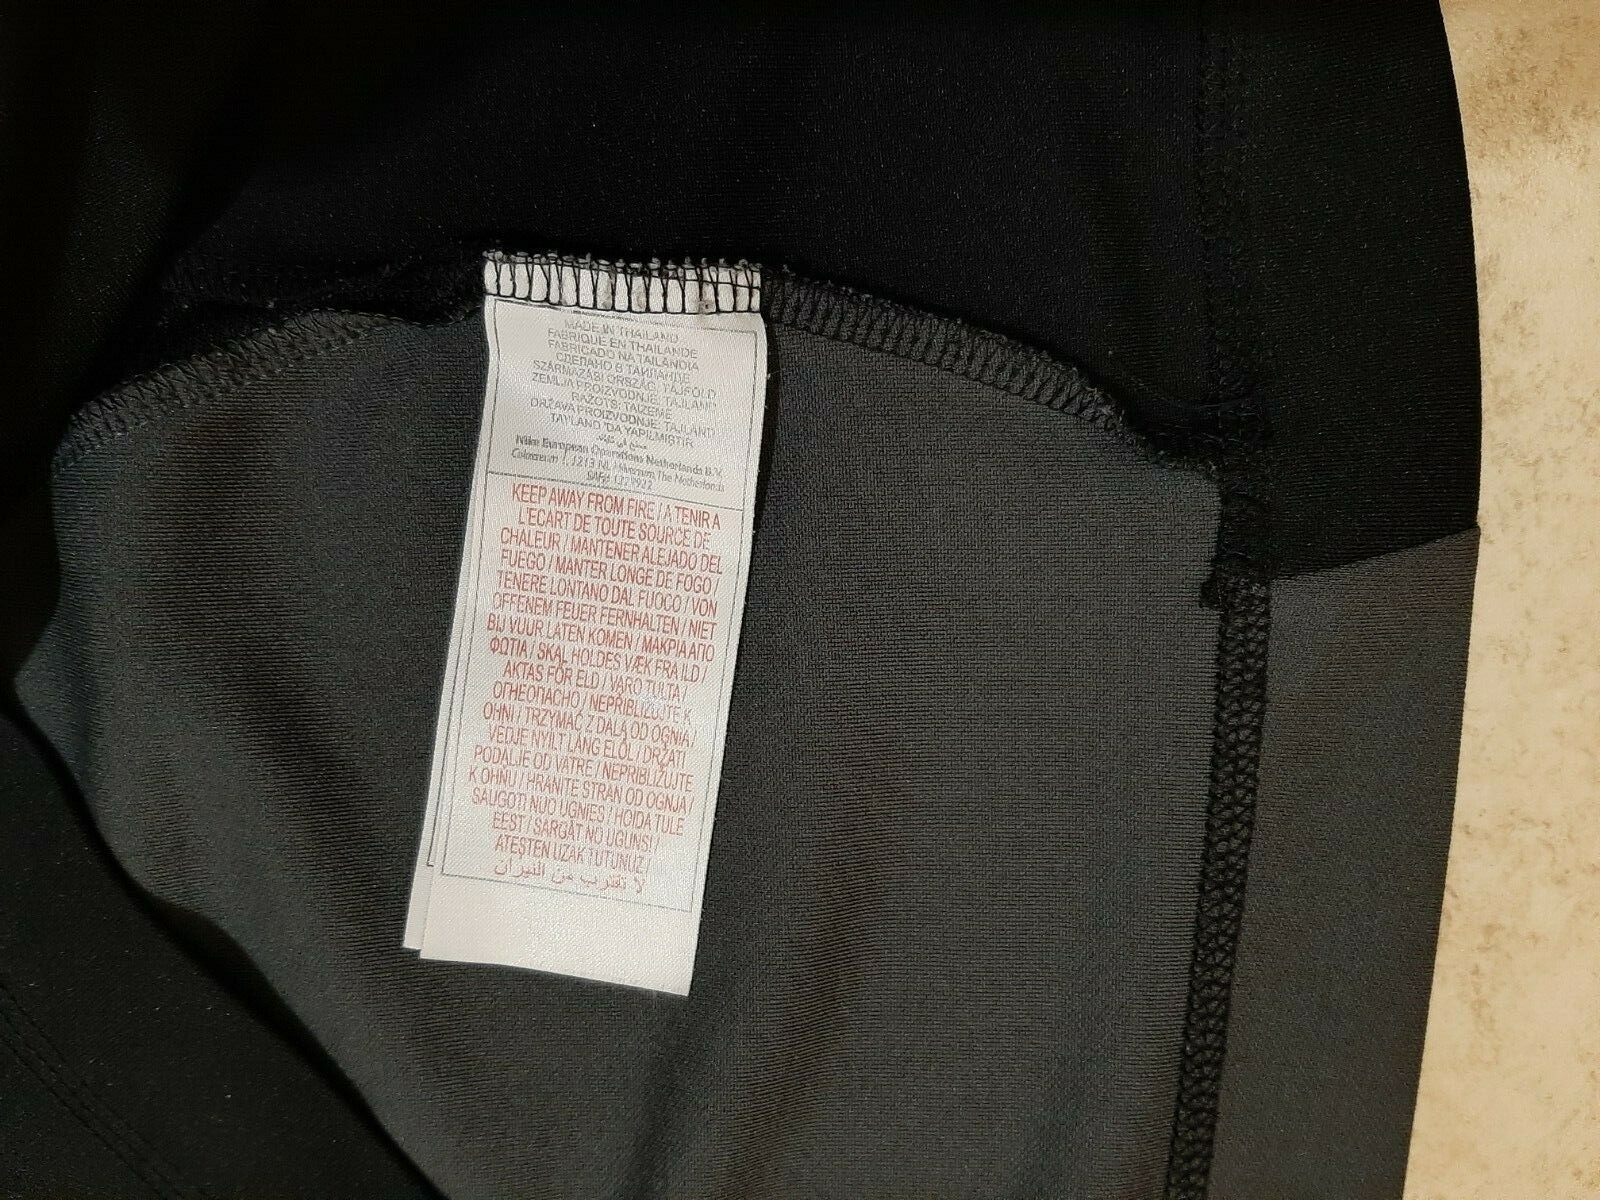 MADE IN THAILAND
FABRIQUÉ EN THAILANDE
FABRICADO NA TAILÂNDIA
СДЕЛАНО В ТАИЛАНДЕ
SZÁRMAZÁSI ORSZÁG: TAJFÖLD
ZEMLJA PROIZVODNJE: TAJLAND
RAŽOTS: TAIZEME
DRŽAVA PROIZVODNJE: TAJLAND
TAYLAND 'DA YAPILMISTIR
Nike European Operations Netherlands B.V.
Colosseum 1, 1213 NL Hilversum, The Netherlands
KEEP AWAY FROM FIRE / A TENIR A
L'ECART DE TOUTE SOURCE DE
CHALEUR / MANTENER ALEJADO DEL
FUEGO / MANTER LONGE DE FOGO /
TENERE LONTANO DAL FUOCO / VON
OFFENEM FEUER FERNHALTEN / NIET
BIJ VUUR LATEN KOMEN / ΜΑΚΡΙΑ ΑΠΟ
ΦΩΤΙΑ / SKAL HOLDES VÆK FRA ILD /
AKTAS FÖR ELD / VARO TULTA /
ОГНЕОПАСНО / NEPRIBLIZUJTE K
OHNI / TRZYMAĆ Z DALA OD OGNIA /
VEDJE NYILT LÁNG ELŐL / DRŽATI
PODALJE OD VATRE / NEPRIBLIZUJTE
K OHNU / HRANITE STRAN OD OGNJA /
SAUGOTI NUO UGNIES / HOIDA TULE
EEST / SARGĀT NO UGUNS! /
ATEŞTEN UZAK TUTUNUZ /
لا تقترب من النيران